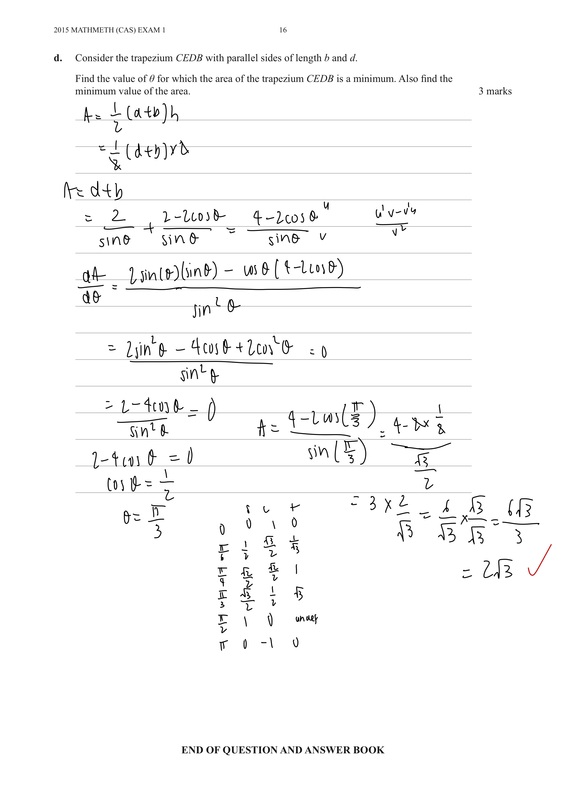 2015 MATHMETH (CAS) EXAM 1 16
d. Consider the trapezium CEDB with parallel sides of length b and d.
Find the value of θ for which the area of the trapezium CEDB is a minimum. Also find the
minimum value of the area. 3 marks
A = 1/2 (a+b)h
= 1/2 (d+b) × 2
A = d+b
= 2/sinθ + (2-2cosθ)/sinθ = (4-2cosθ)/sinθ u v (u'v-v'u)/v²
dA/dθ = (2sin(θ)(sinθ) - cosθ(4-2cosθ))/sin²θ
= (2sin²θ - 4cosθ + 2cos²θ)/sin²θ = 0
= (2-4cosθ)/sin²θ = 0
2-4cosθ = 0
cosθ = 1/2
θ = π/3
A = (4-2cos(π/3))/sin(π/3) = (4-2×1/2)/(√3/2)
= 3 × 2/√3 = 6/√3 × √3/√3 = 6√3/3
= 2√3 ✓
s c t
0 0 1 0
π/6 1/2 √3/2 1/√3
π/4 √2/2 √2/2 1
π/3 √3/2 1/2 √3
π/2 1 0 undef
π 0 -1 0
END OF QUESTION AND ANSWER BOOK